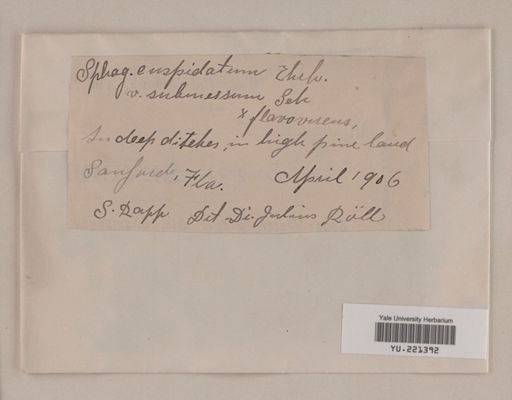 Sphag. cuspidatum Ehrh.
v. submersum Sch
x flavovirens,
In deep ditches, in high pine land
Sanford, Fla. April 1906
S. Rapp Det. Dr. Julius Röll
Yale University Herbarium
YU.221392